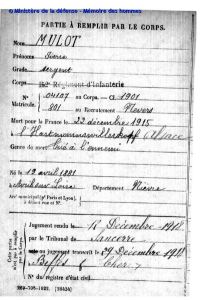 © Ministère de la défense - Mémoire des hommes
PARTIE À REMPLIR PAR LE CORPS.
Nom MULOT
Prénoms Pierre
Grade sergent
Corps Régiment d'Infanterie
N° au Corps. — Cl. 1901
Matricule. 801 au Recrutement Nevers
Mort pour la France le 22 décembre 1915
à l'Hartmannswillerkopf Alsace
Genre de mort tué à l'ennemi
Né le 12 avril 1881
à Loire Département Nièvre
Arr' municipal (p' Paris et Lyon),
à défaut rue et N°.
Jugement rendu le Décembre 1918
par le Tribunal de Sancerre
acte ou jugement transcrit le 29 Décembre 1918
à Cher
N° du registre d'état civil